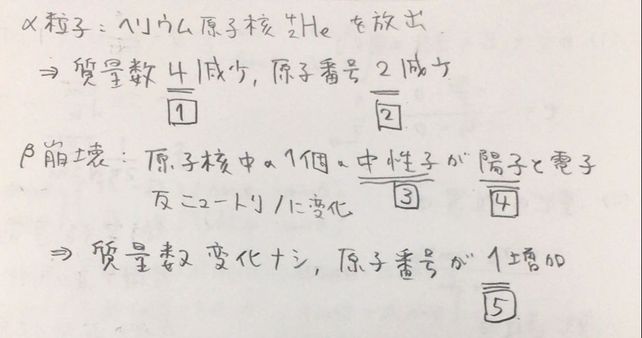 α粒子：ヘリウム原子核 ⁴₂He を放出
⇒ 質量数 4 減少, 原子番号 2 減少
1 2
β崩壊：原子核中の1個の中性子が陽子と電子
3 4
反ニュートリノに変化
⇒ 質量数 変化ナシ, 原子番号が 1増加
5